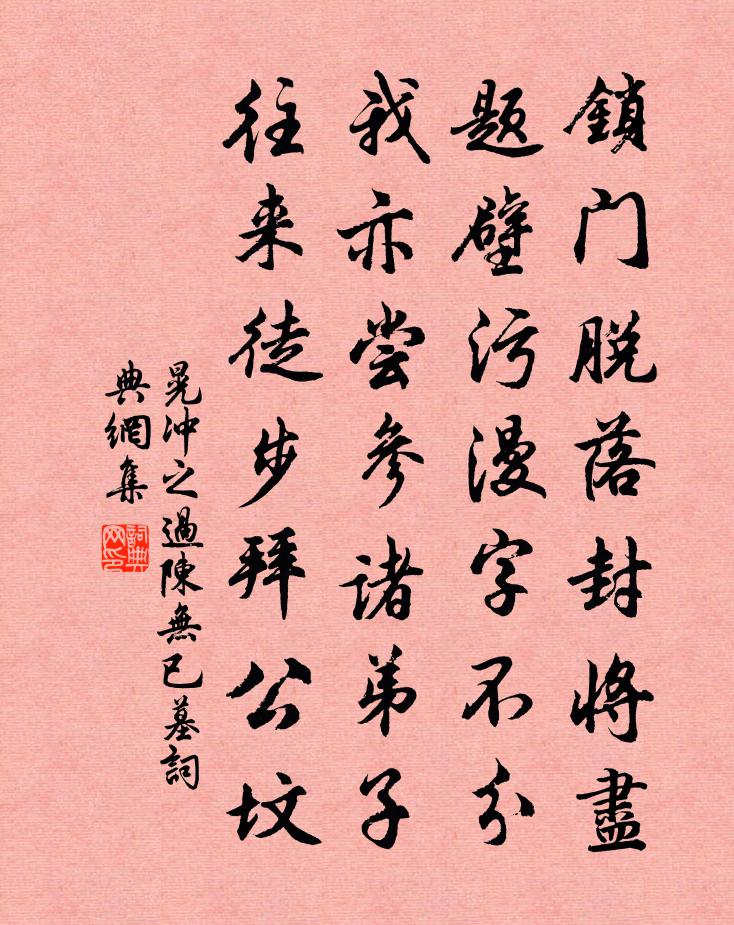 鎖门脱落封將盡
题壁污漫字不分
我亦尝參諸弟子
往来徒步拜公坟
晃冲之過陳無已墓詞
典網集
詞典網印